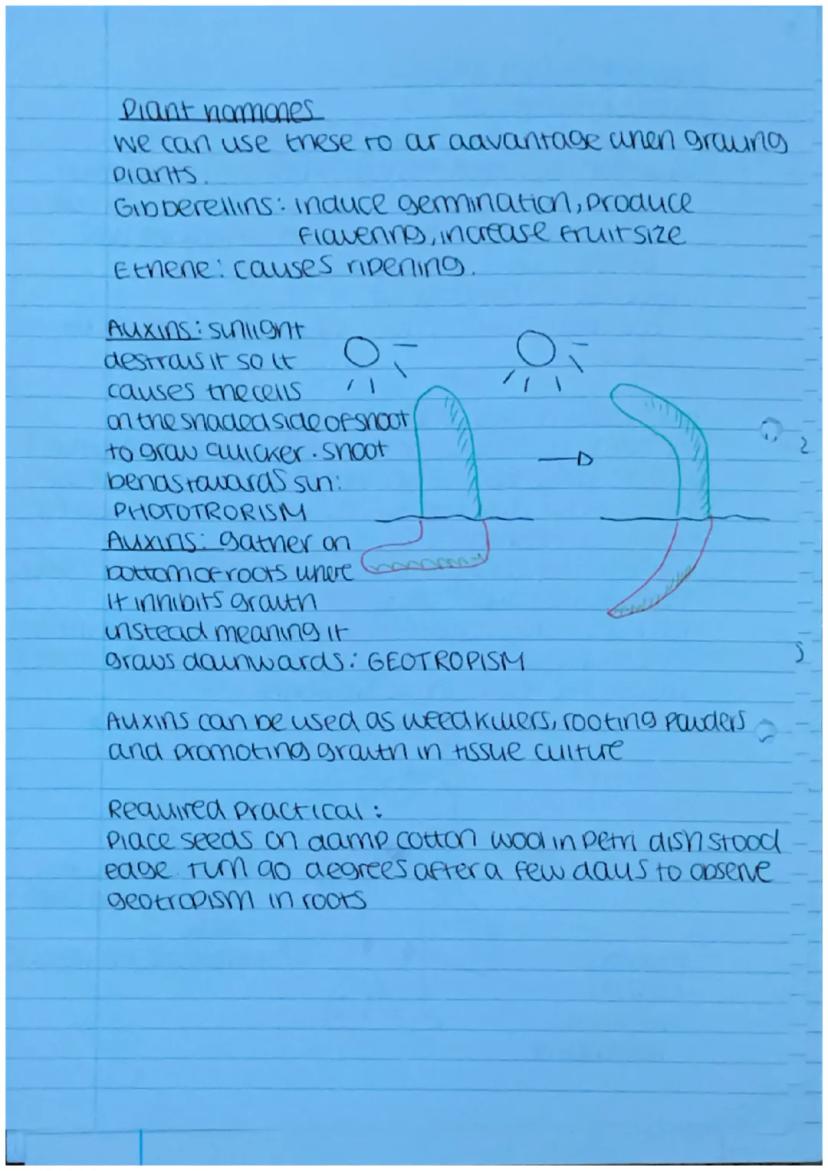 Plant hormones
We can use these to ar advantage when growing
plants.
Gibberellins: induce germination, produce
flowering, increase fruit size
Ethene: causes ripening.
Auxins: sunlight
destroys it so it
causes the cells
on the shaded side of shoot
to grow quicker. shoot
bends towards sun:
PHOTOTROPISM
Auxins: gather on
bottom of roots where
it inhibits growth
instead meaning it
grows downwards: GEOTROPISM
Auxins can be used as weedkillers, rooting powders
and promoting growth in tissue culture
Required practical:
Place seeds on damp cotton wool in petri dish stood
edge. Turn 90 degrees after a few days to observe
geotropism in roots